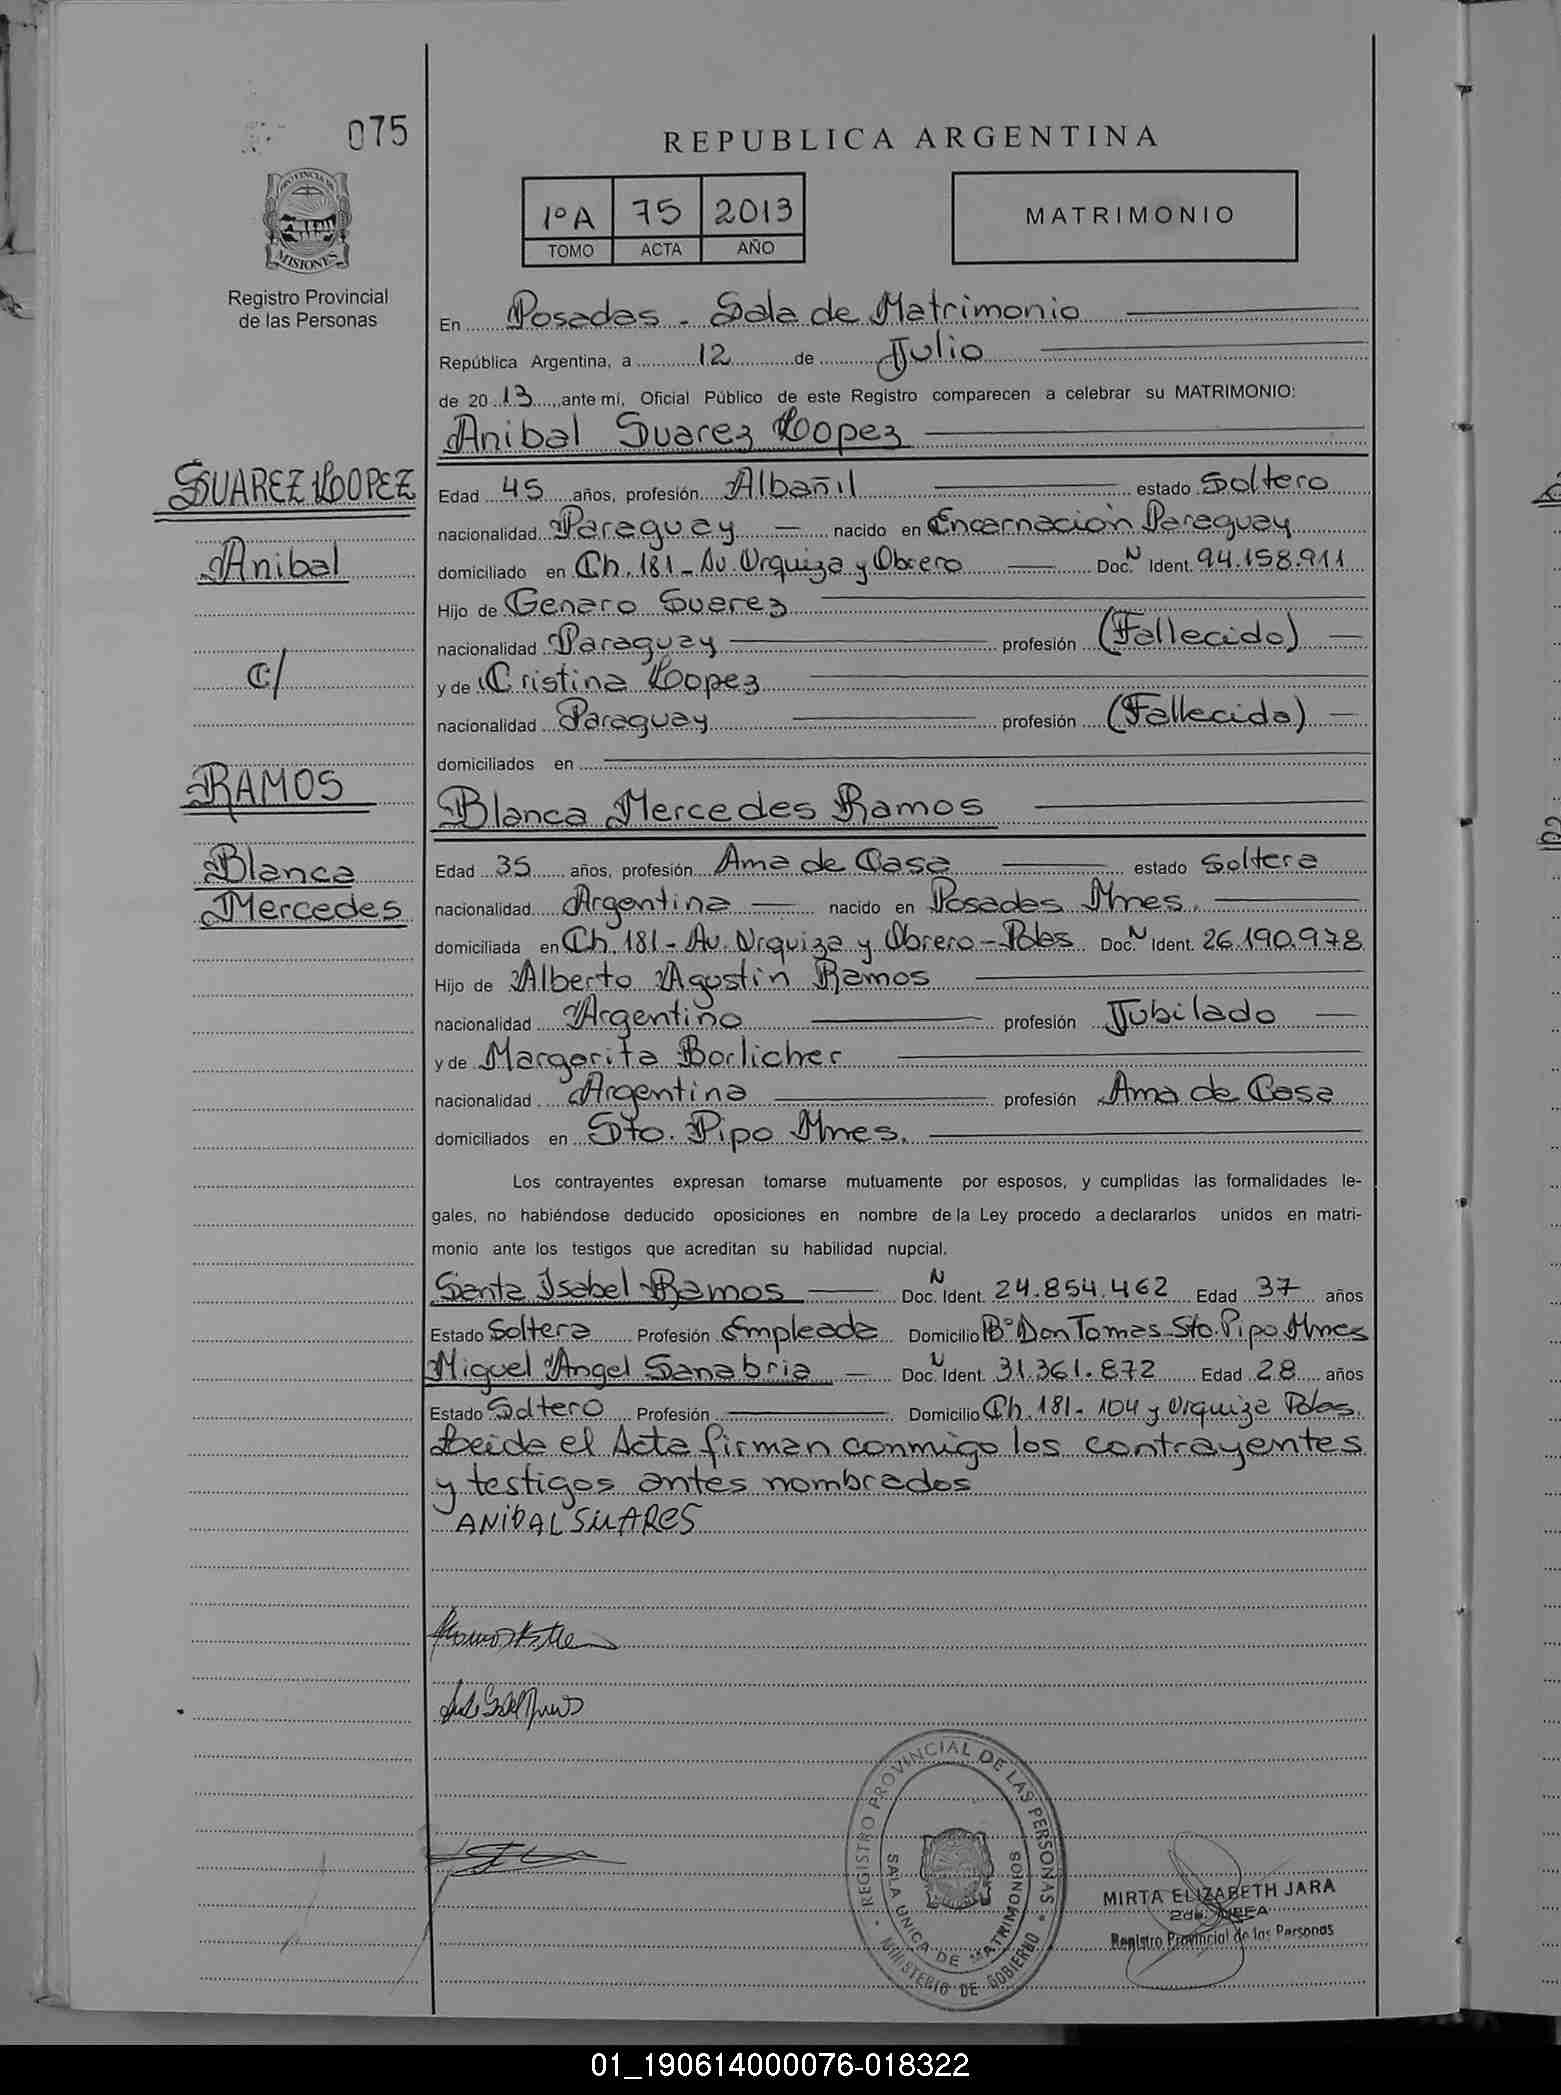 075
REPUBLICA ARGENTINA
1º A 75 2013
TOMO ACTA AÑO
MATRIMONIO
PROVINCIA DE
MISIONES
Registro Provincial
de las Personas
En Posadas - Sala de Matrimonio
República Argentina, a 12 de Julio
de 2013, ante mí, Oficial Público de este Registro comparecen a celebrar su MATRIMONIO:
Anibal Suarez Lopez
SUAREZ LOPEZ
Anibal
C/
RAMOS
Blanca
Mercedes
Edad 45 años, profesión Albañil estado Soltero
nacionalidad Paraguay nacido en Encarnación Paraguay
domiciliado en Ch. 181 - Av. Urquiza y Obrero Doc. N Ident. 94.158.911
Hijo de Genaro Suarez
nacionalidad Paraguay profesión (Fallecido)
y de Cristina Lopez
nacionalidad Paraguay profesión (Fallecida)
domiciliados en
Blanca Mercedes Ramos
Edad 35 años, profesión Ama de Casa estado Soltera
nacionalidad Argentina nacido en Posadas Mnes.
domiciliada en Ch. 181 - Av. Urquiza y Obrero - Pdas Doc. N Ident. 26.190.978
Hijo de Alberto Agustin Ramos
nacionalidad Argentino profesión Jubilado
y de Margarita Borlicher
nacionalidad Argentina profesión Ama de Casa
domiciliados en Sto. Pipo Mnes.
Los contrayentes expresan tomarse mutuamente por esposos, y cumplidas las formalidades le-
gales, no habiéndose deducido oposiciones en nombre de la Ley procedo a declararlos unidos en matri-
monio ante los testigos que acreditan su habilidad nupcial.
Santa Isabel Ramos Doc. N Ident. 24.854.462 Edad 37 años
Estado Soltera Profesión Empleada Domicilio Bº Don Tomas - Sto. Pipo Mnes
Miguel Angel Sanabria Doc. N Ident. 31.361.872 Edad 28 años
Estado Soltero Profesión Domicilio Ch. 181 - 104 y Urquiza Pdas.
Leida el Acta firman conmigo los contrayentes
y testigos antes nombrados
ANIBAL SUARES
REGISTRO PROVINCIAL DE LAS PERSONAS
SALA UNICA DE MATRIMONIOS
MINISTERIO DE GOBIERNO
MIRTA ELIZABETH JARA
2da. JEFA
Registro Provincial de las Personas
01_190614000076-018322